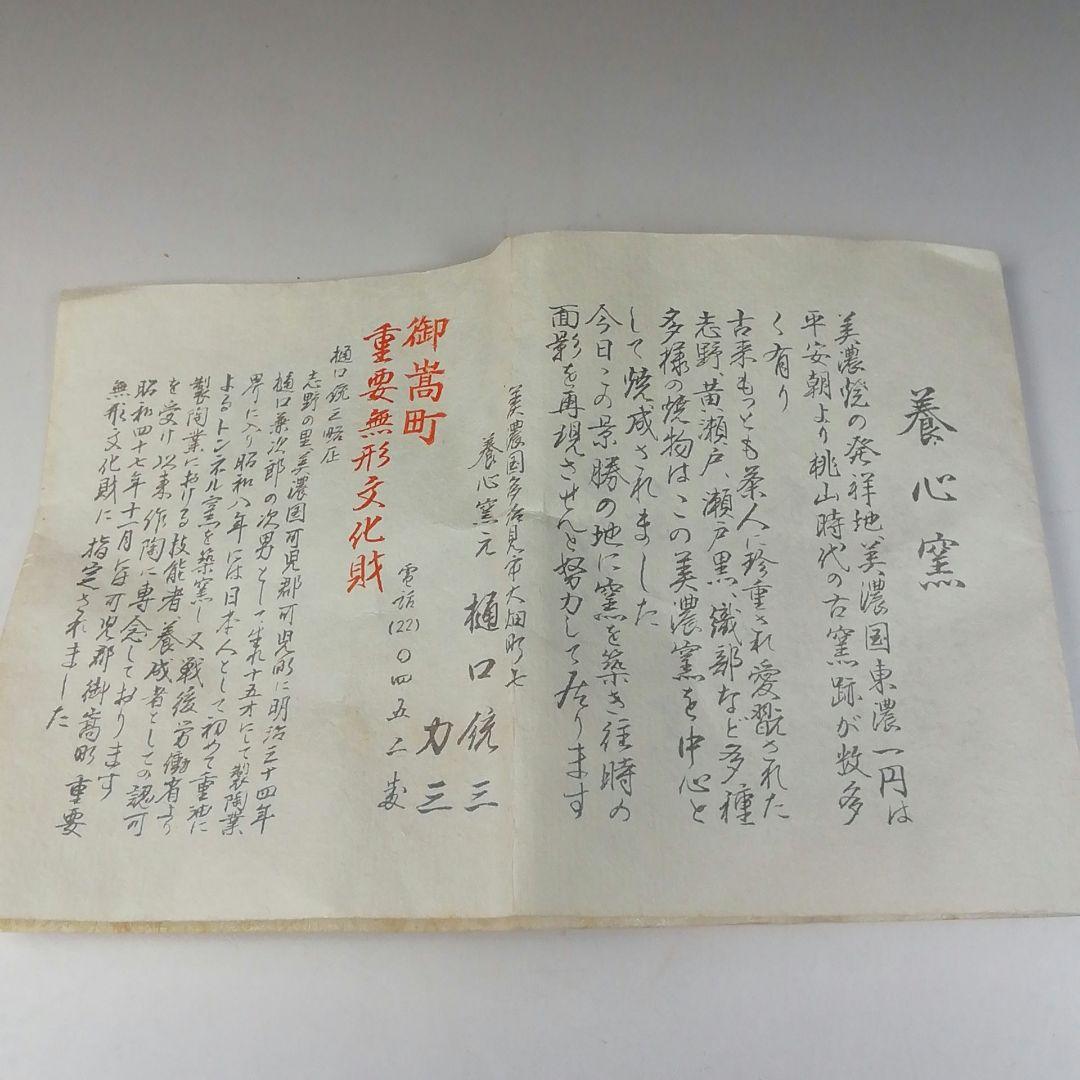 養心窯
美濃焼の発祥地、美濃国東濃一円は
平安朝より桃山時代の古窯跡が数多
く有り
古来もっとも茶人に珍重され愛翫された
志野、黄瀬戸、瀬戸黒、織部など多種
多様の焼物はこの美濃窯を中心と
して焼成されました
今日この景勝の地に窯を築き往時の
面影を再現させんと努力して居ります
美濃国多治見市大畑町七
養心窯元 樋口銃三
力三
電話(22)〇四五二番
御嵩町
重要無形文化財
樋口銃三略歴
志野の里、美濃国可児郡可児町に明治三十四年
樋口兼次郎の次男として生れ十五才にて製陶業
界に入り昭和八年には日本人として初めて重油に
よるトンネル窯を築窯し又戦後労働省より
製陶業における技能者養成者としての認可
を受け以来作陶に専念しております
昭和四十七年十一月岐阜可児郡御嵩町重要
無形文化財に指定されました